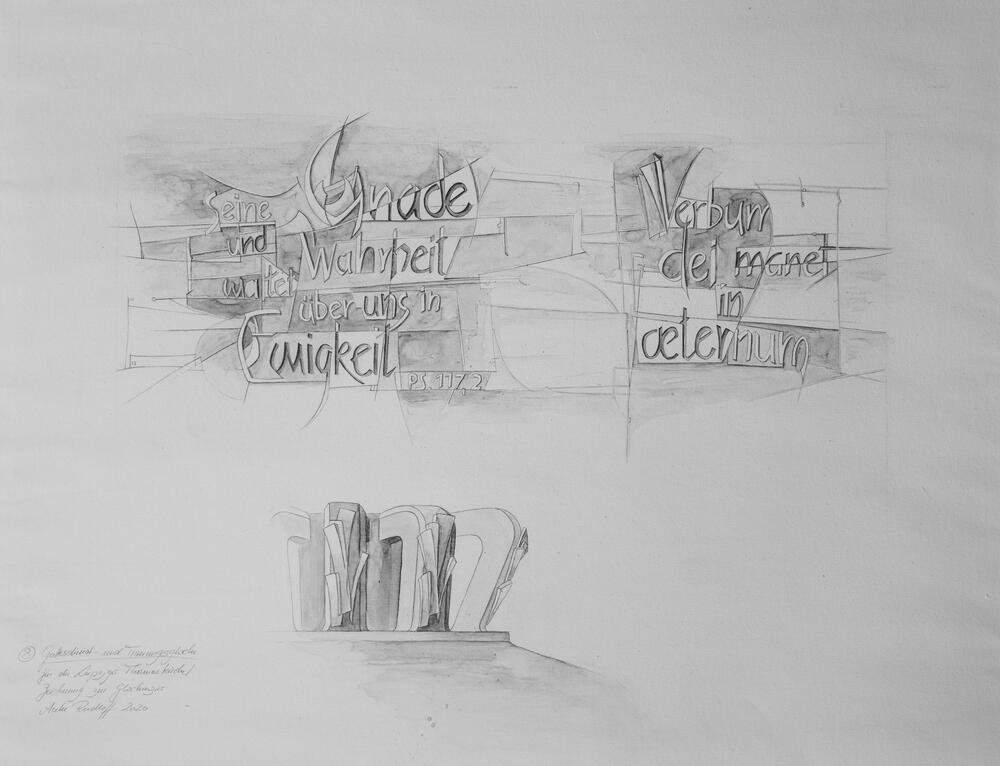 Seine Gnade
und Wahrheit
waltet über uns in
Ewigkeit
PS. 117, 2
Verbum
dei manet
in
æternum
② Gottesdienst- und Trauungsglocke
für die Leipziger Thomaskirche/
Zeichnung zur Glockenzier
2020